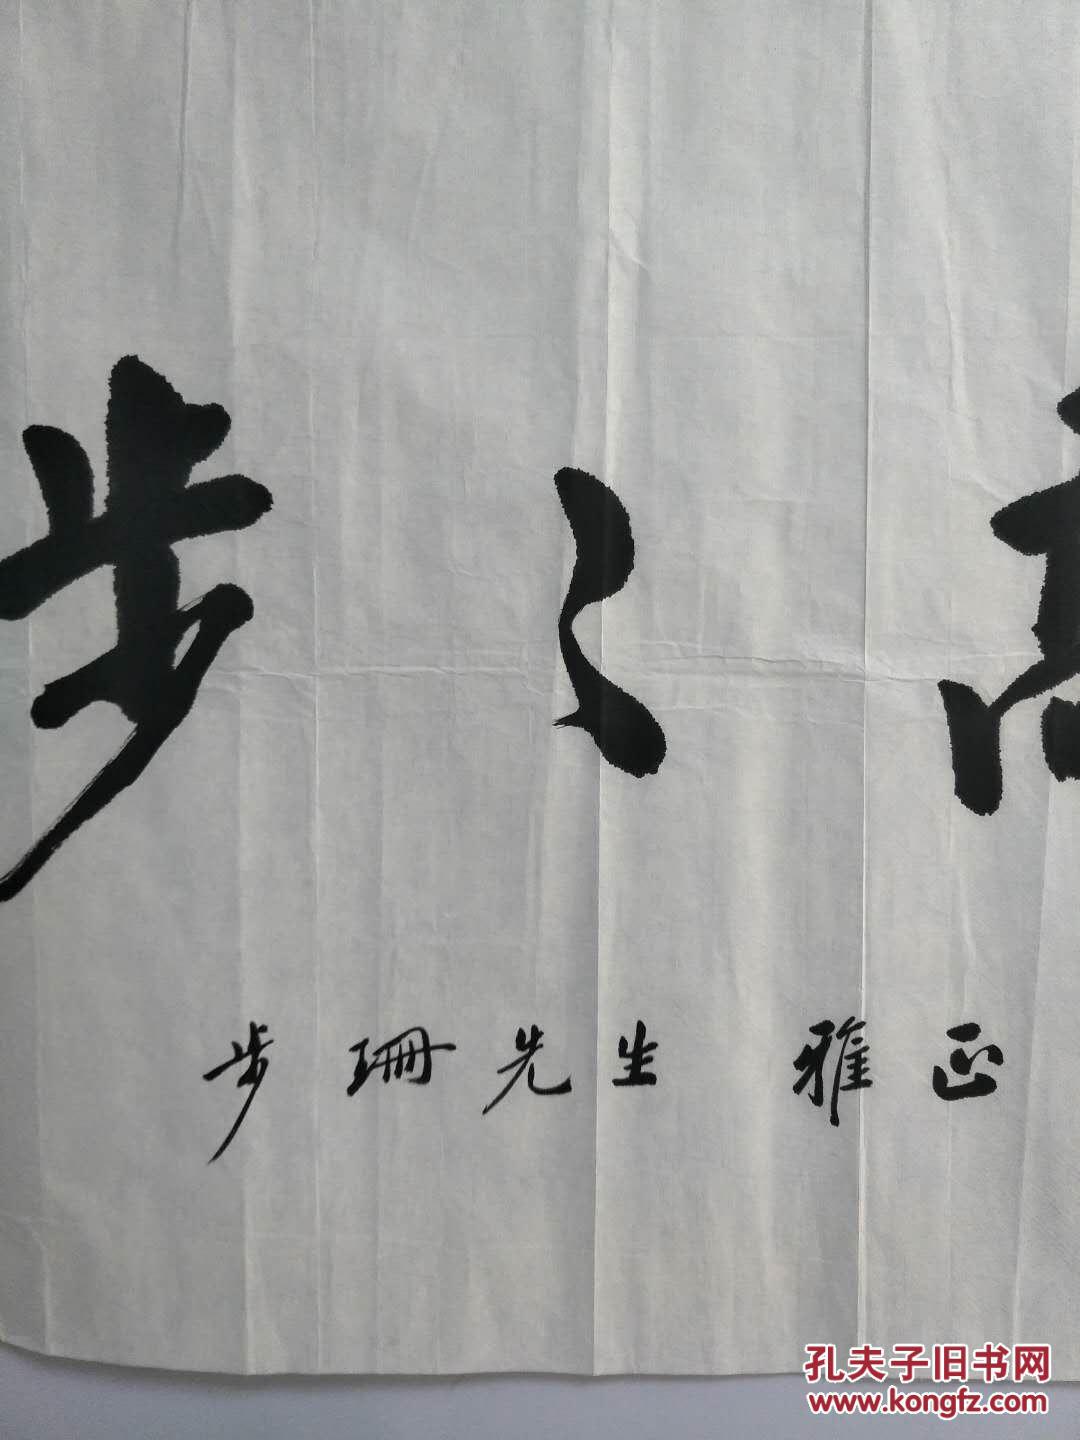 步々高
步珊先生 雅正
孔夫子旧书网
www.kongfz.com